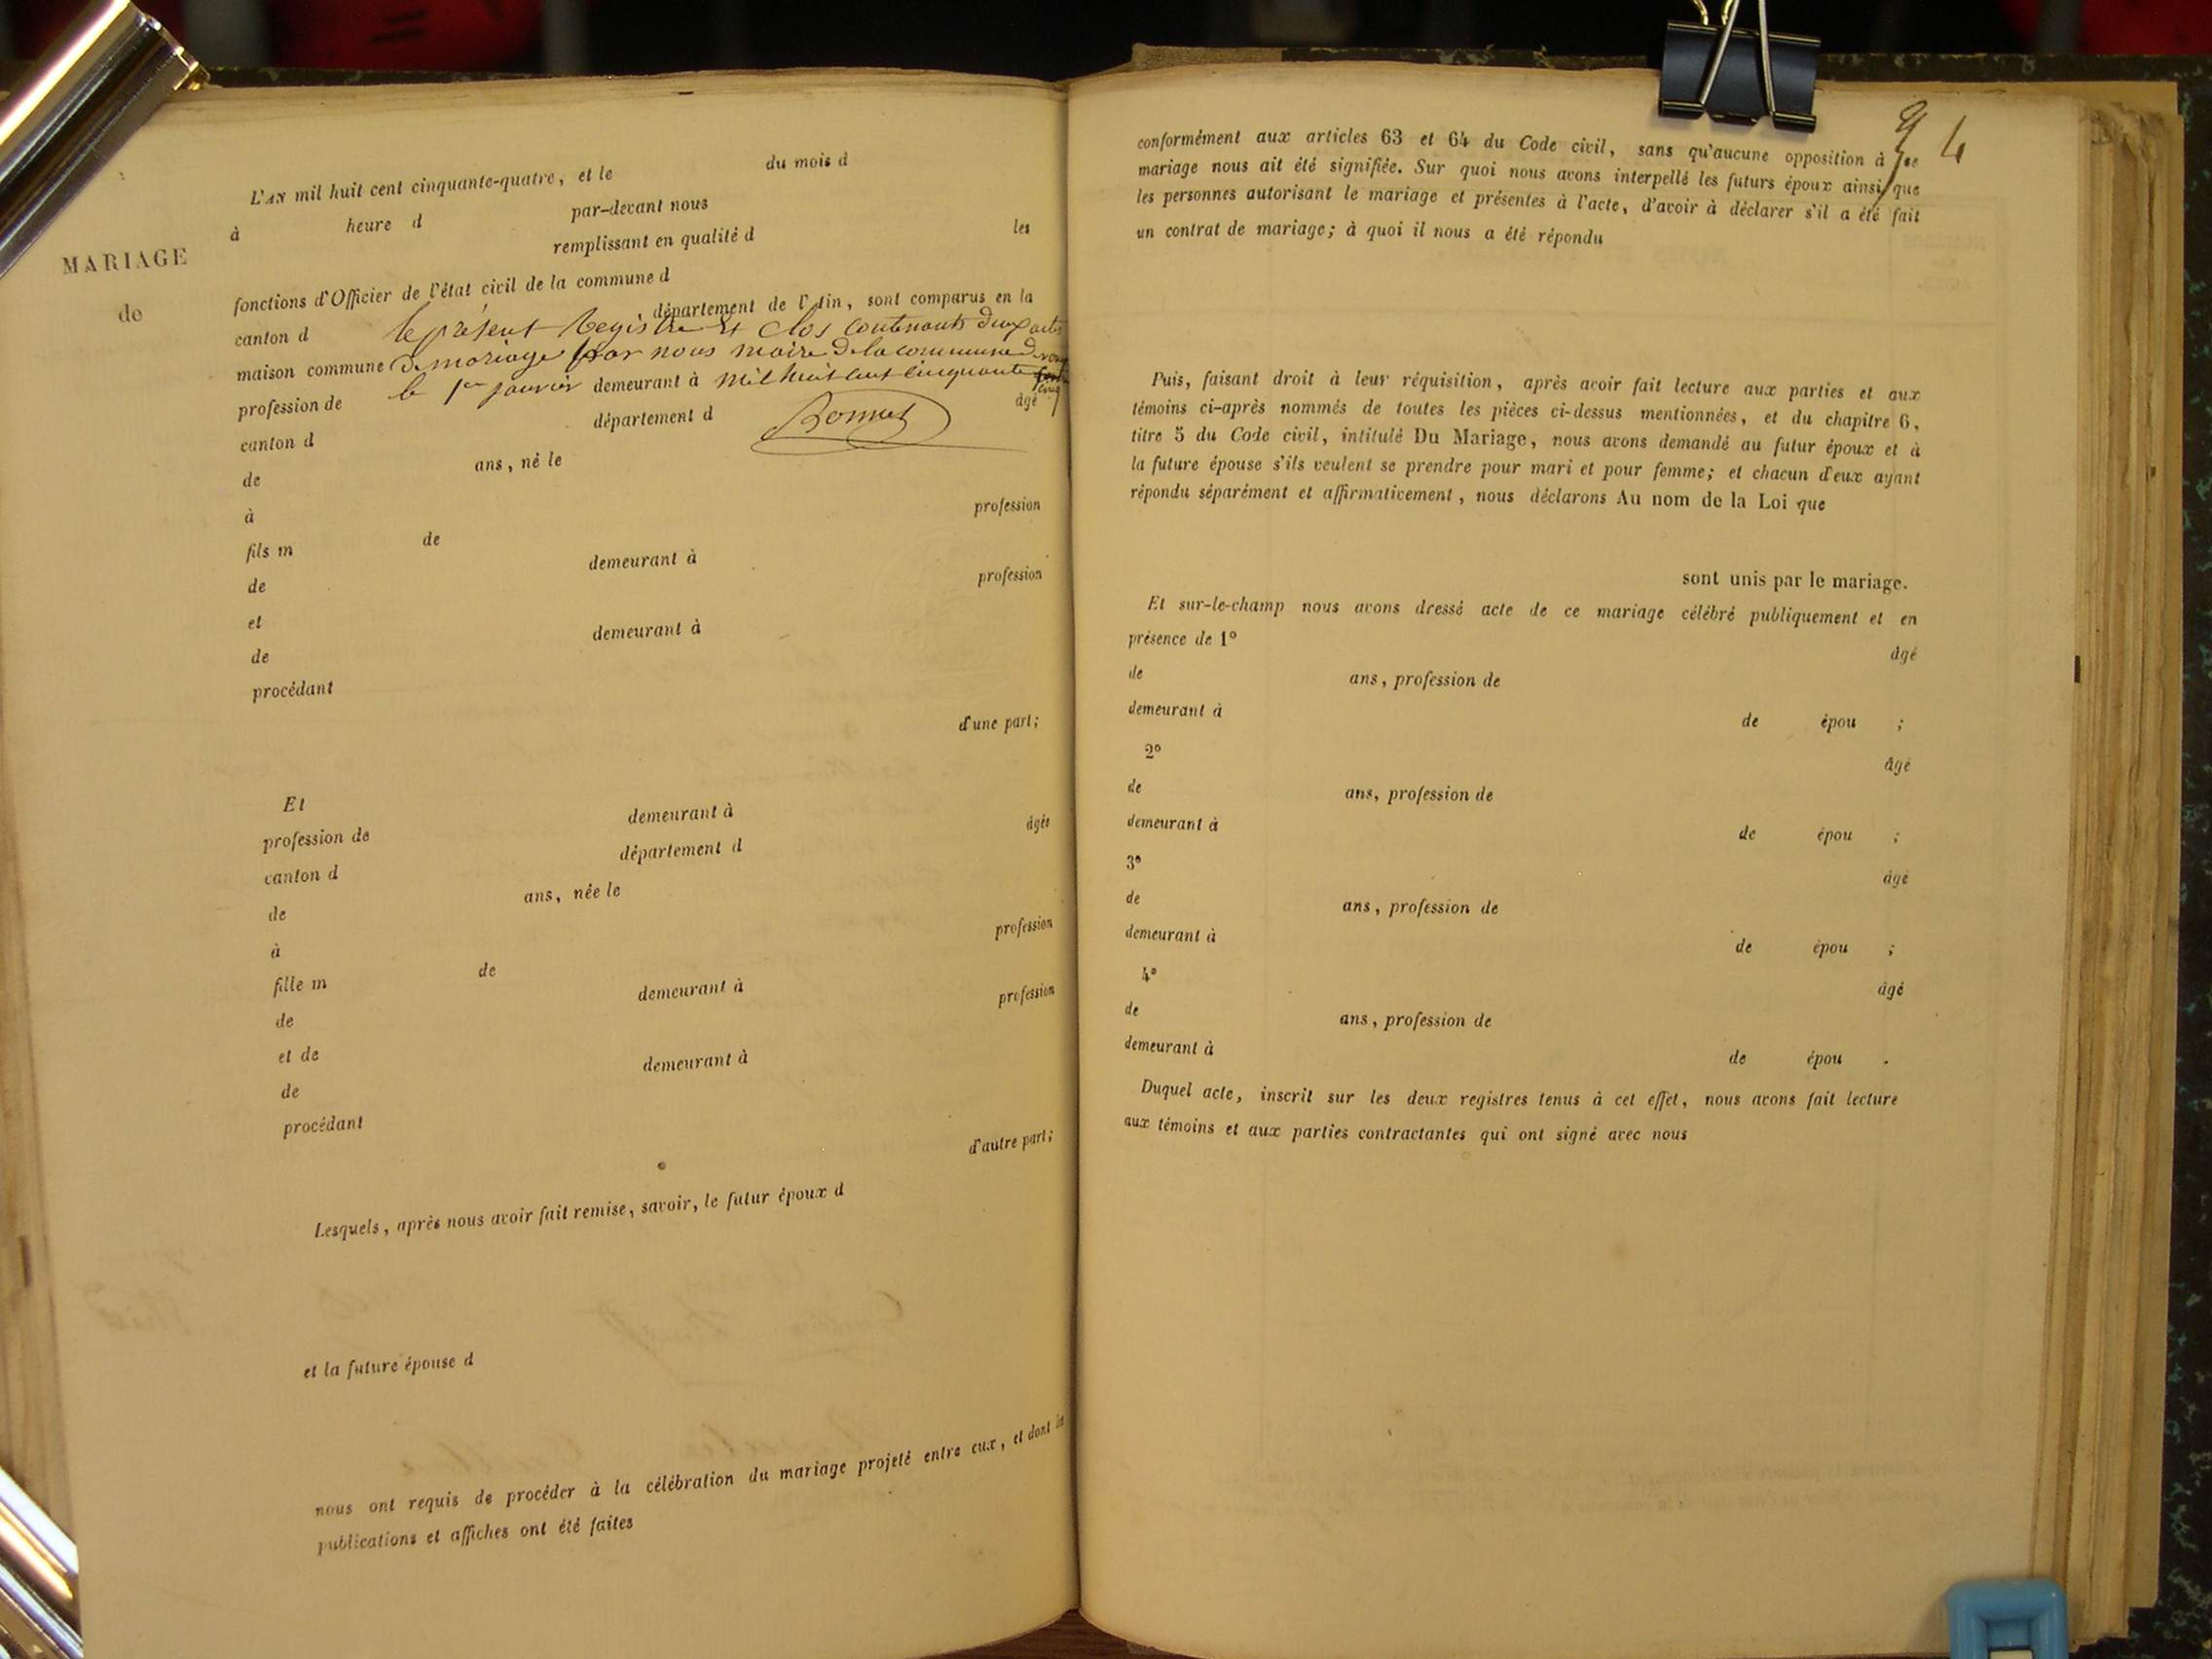 MARIAGE
de
L'AN mil huit cent cinquante-quatre, et le du mois d
à heure d par-devant nous
remplissant en qualité d les
fonctions d'Officier de l'état civil de la commune d
canton d département de l'Ain, sont comparus en la
le présent Registre Et Clos Contenant deux actes
maison commune
de mariage par nous maire de la commune de
profession de demeurant à
le 1er janvier mil huit cent cinquante cinq
âgé
canton d département d
Bonnet
de ans, né le
à
profession
fils m de
de demeurant à
profession
et
de demeurant à
procédant
d'une part;
Et
profession de demeurant à
âgée
canton d département d
de ans, née le
à
profession
fille m de
de demeurant à
profession
et de
de demeurant à
procédant
d'autre part;
Lesquels, après nous avoir fait remise, savoir, le futur époux d
et la future épouse d
nous ont requis de procéder à la célébration du mariage projeté entre eux, et dont les
publications et affiches ont été faites
4
conformément aux articles 63 et 64 du Code civil, sans qu'aucune opposition à ce
mariage nous ait été signifiée. Sur quoi nous avons interpellé les futurs époux ainsi que
les personnes autorisant le mariage et présentes à l'acte, d'avoir à déclarer s'il a été fait
un contrat de mariage; à quoi il nous a été répondu
Puis, faisant droit à leur réquisition, après avoir fait lecture aux parties et aux
témoins ci-après nommés de toutes les pièces ci-dessus mentionnées, et du chapitre 6,
titre 5 du Code civil, intitulé Du Mariage, nous avons demandé au futur époux et à
la future épouse s'ils veulent se prendre pour mari et pour femme; et chacun d'eux ayant
répondu séparément et affirmativement, nous déclarons Au nom de la Loi que
sont unis par le mariage.
Et sur-le-champ nous avons dressé acte de ce mariage célébré publiquement et en
présence de 1º
âgé
de ans, profession de
demeurant à de épou ;
2º
âgé
de ans, profession de
demeurant à de épou ;
3º
âgé
de ans, profession de
demeurant à de épou ;
4º
âgé
de ans, profession de
demeurant à de épou .
Duquel acte, inscrit sur les deux registres tenus à cet effet, nous avons fait lecture
aux témoins et aux parties contractantes qui ont signé avec nous